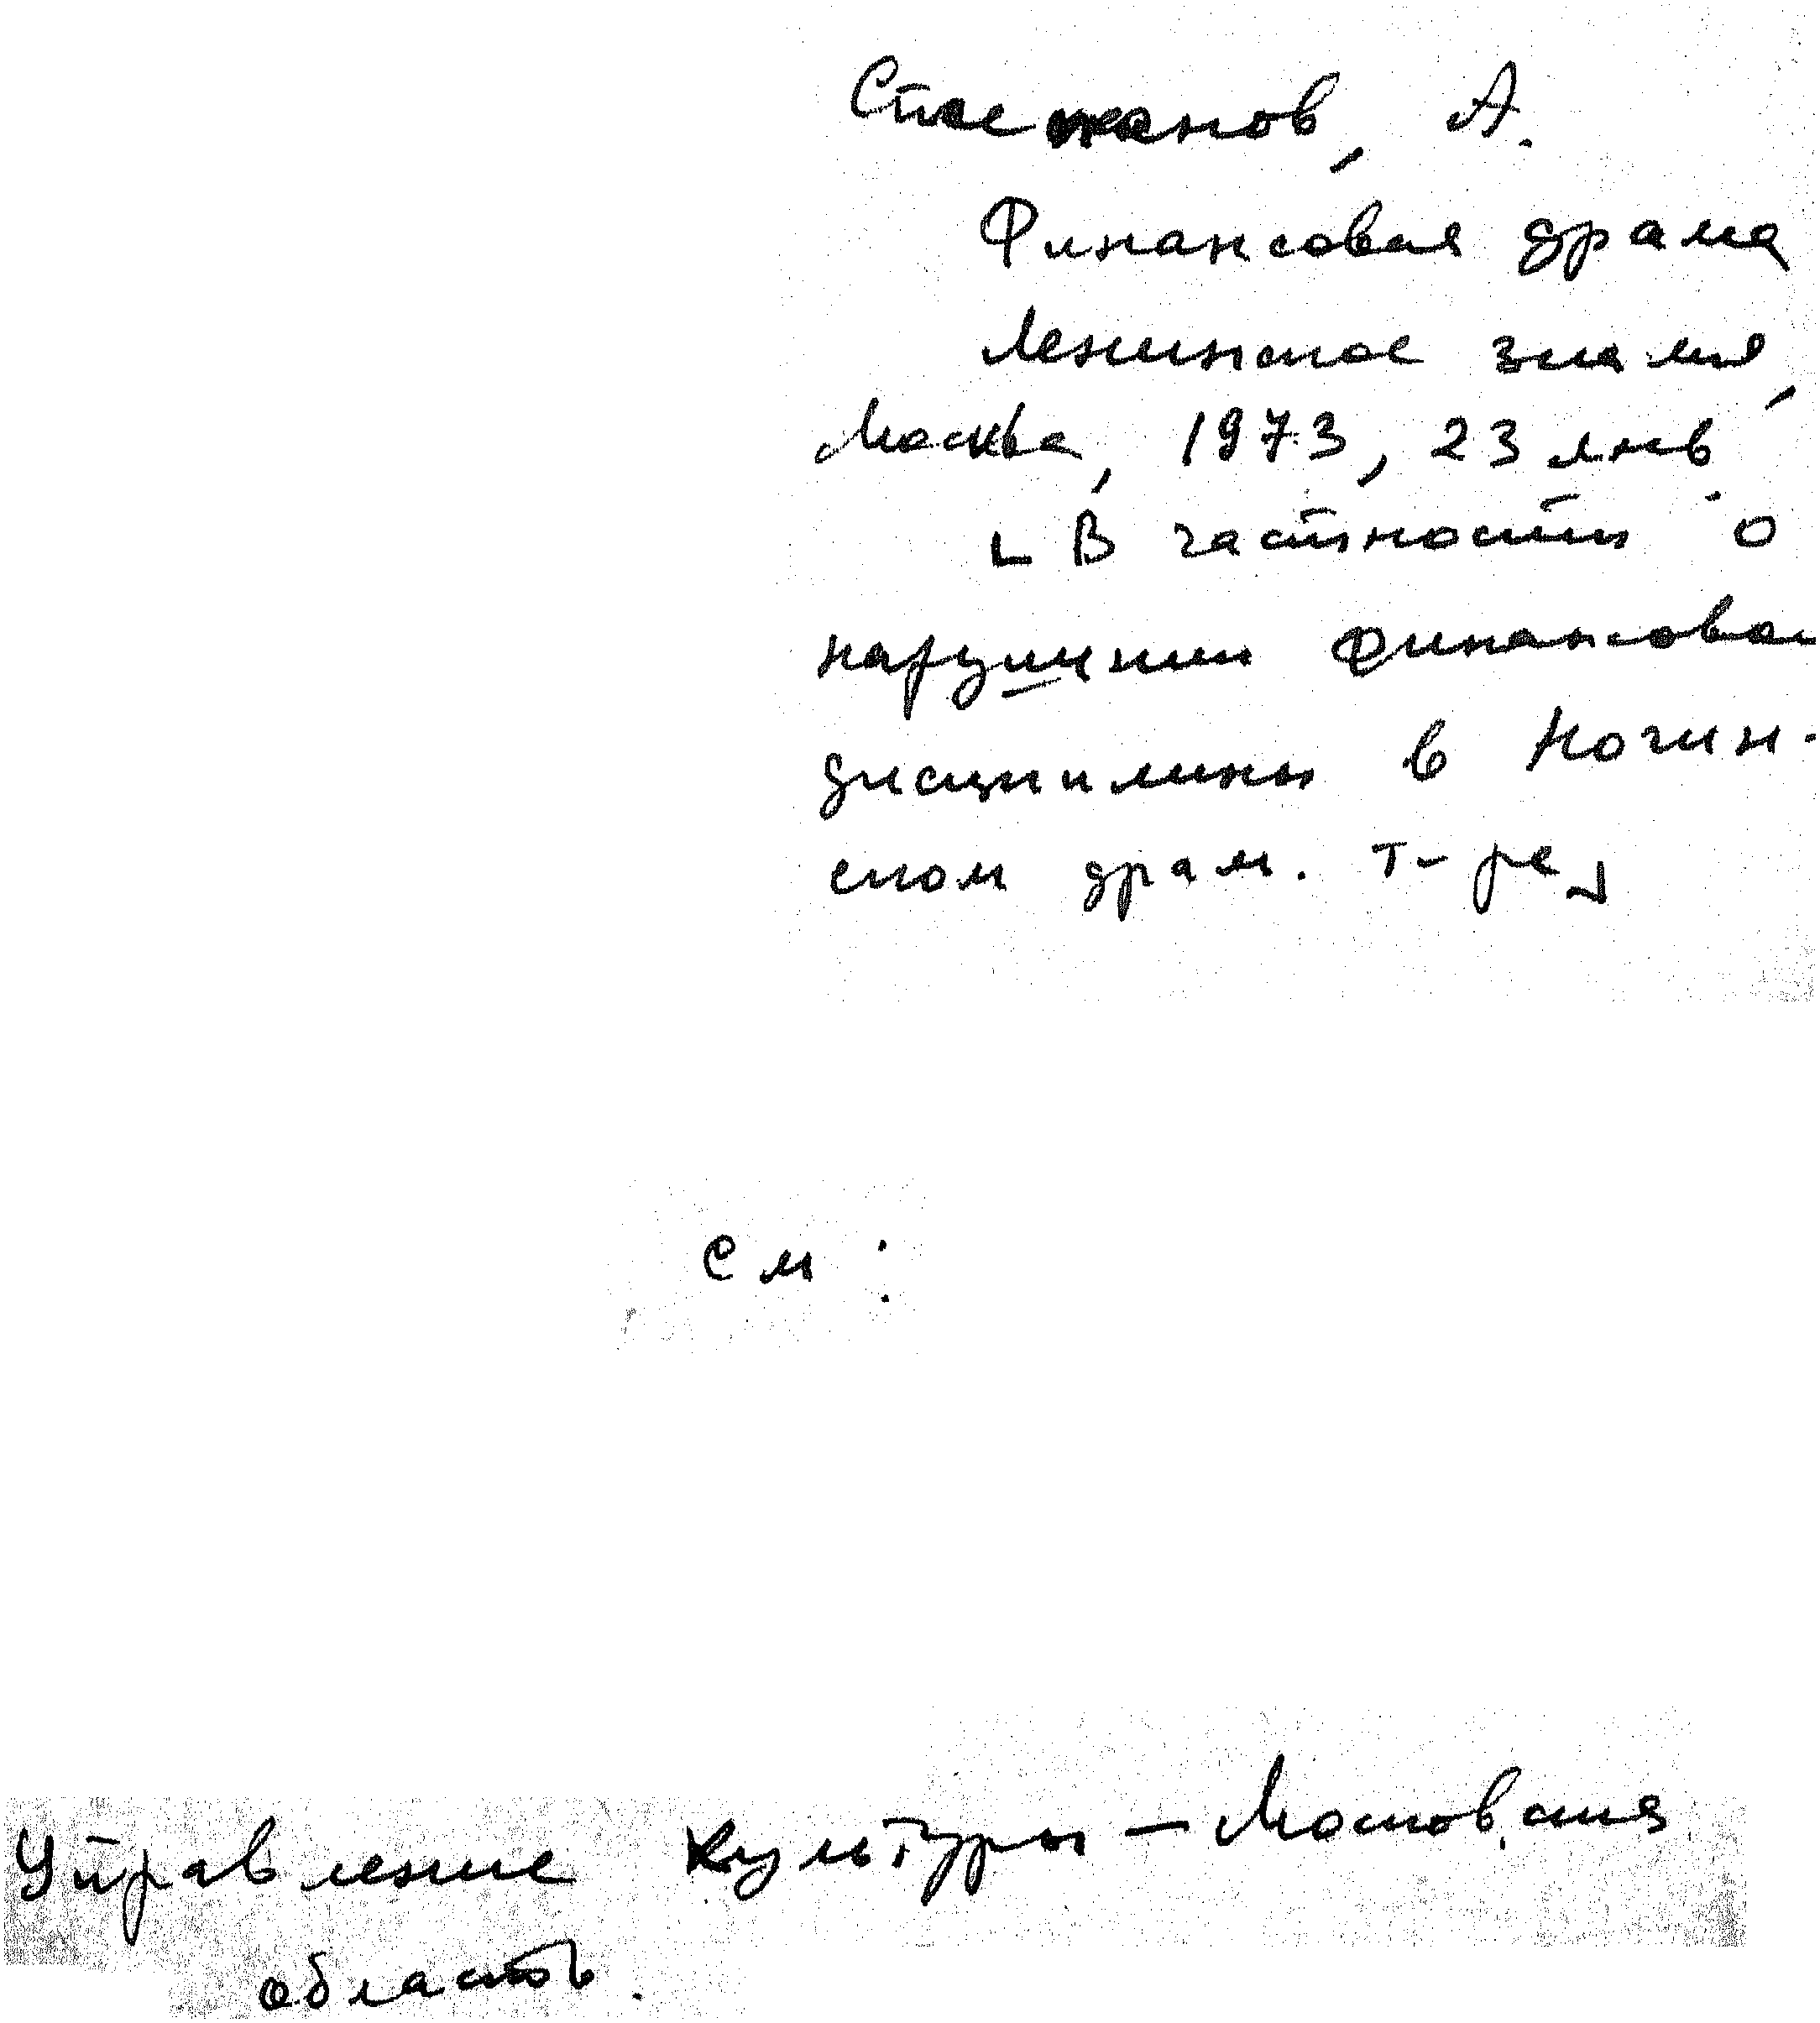 А.
Финансовая драма
Ленинское знамя,
Москва, 1973, 23 янв.
В частности о
нарушении финансовой
дисциплины в Ногин-
ском драм. т-ре
См:
Управление культуры – Московская
область.